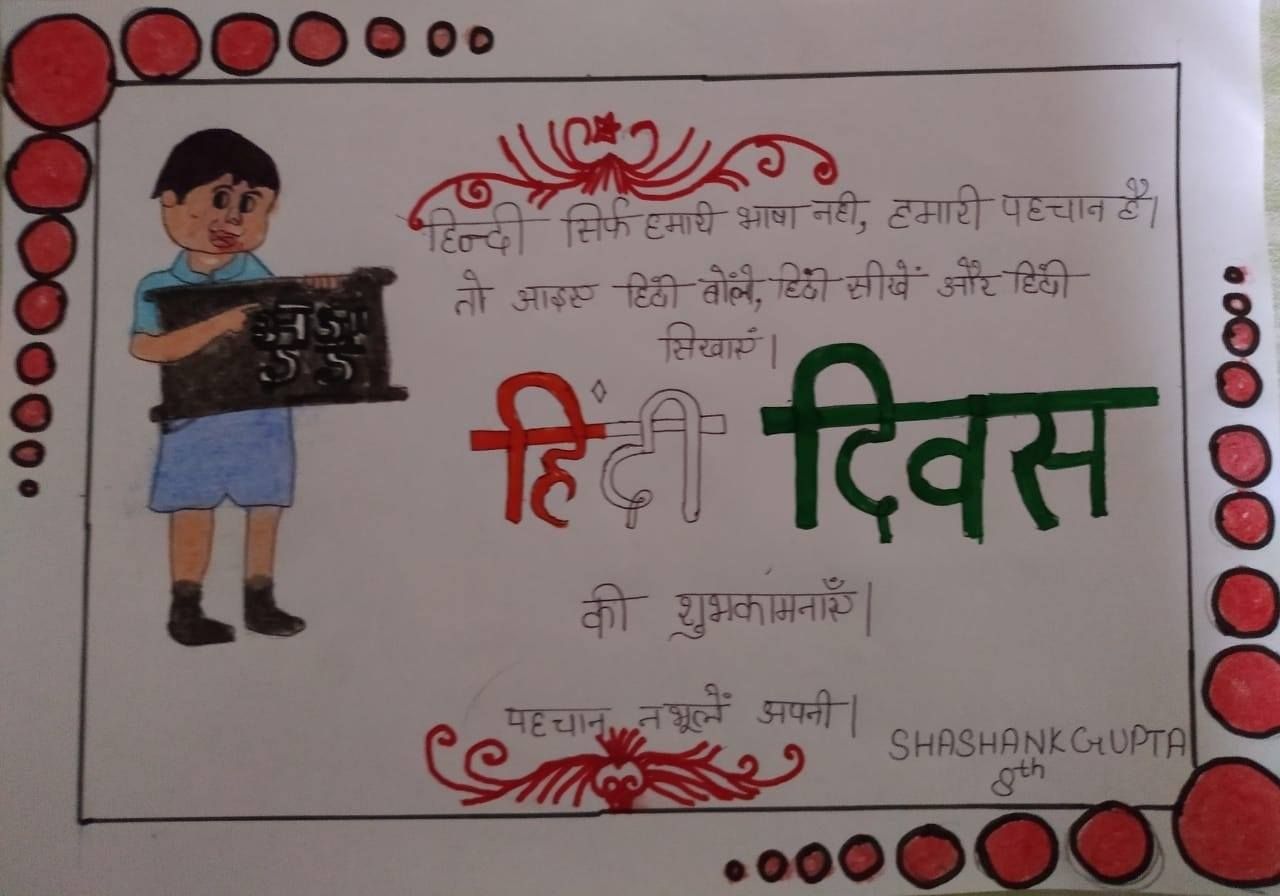 हिन्दी सिर्फ हमारी भाषा नही, हमारी पहचान है।
तो आइए हिंदी बोंले, हिंदी सीखें और हिंदी
सिखाएं।
हिंदी दिवस
की शुभकामनाएँ।
पहचान न भूलें अपनी।
SHASHANK GUPTA
8th